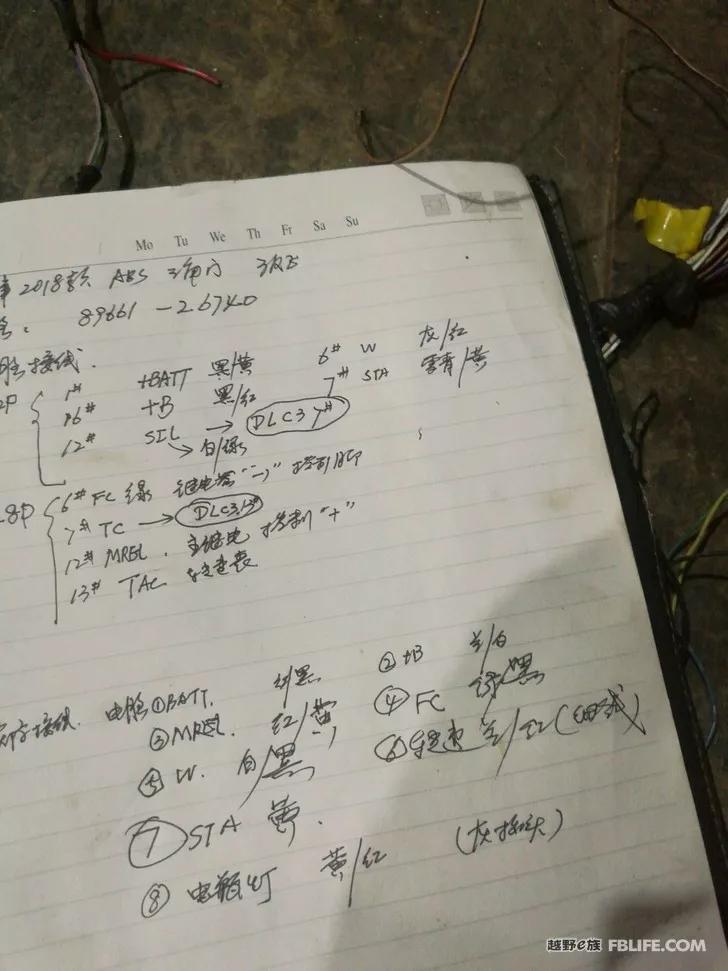 Mo Tu We Th Fr Sa Su
2018款 ABS
89661-26740
接线.
1# +BATT 黑/黄 6# W 灰/红
16# +B 黑/红 7# STA /黄
12# SIL → DLC3 7#
→ 白/绿
8P 6# FC 绿 继电器"一" 控制脚
7# TC → DLC3 13#
12# MREL. 主继电 控制"+"
13# TAC 转速表
接线. 电脑 ①BATT. 黑 ② +B 兰/白
③ MREL. 红/黄 ④ FC 绿黑
⑤ W. 白/黑 ⑥ 转速 兰/红(细线)
⑦ STA 黄.
⑧ 电瓶灯 黄/红 (灰接头)
越野e族 FBLIFE.COM